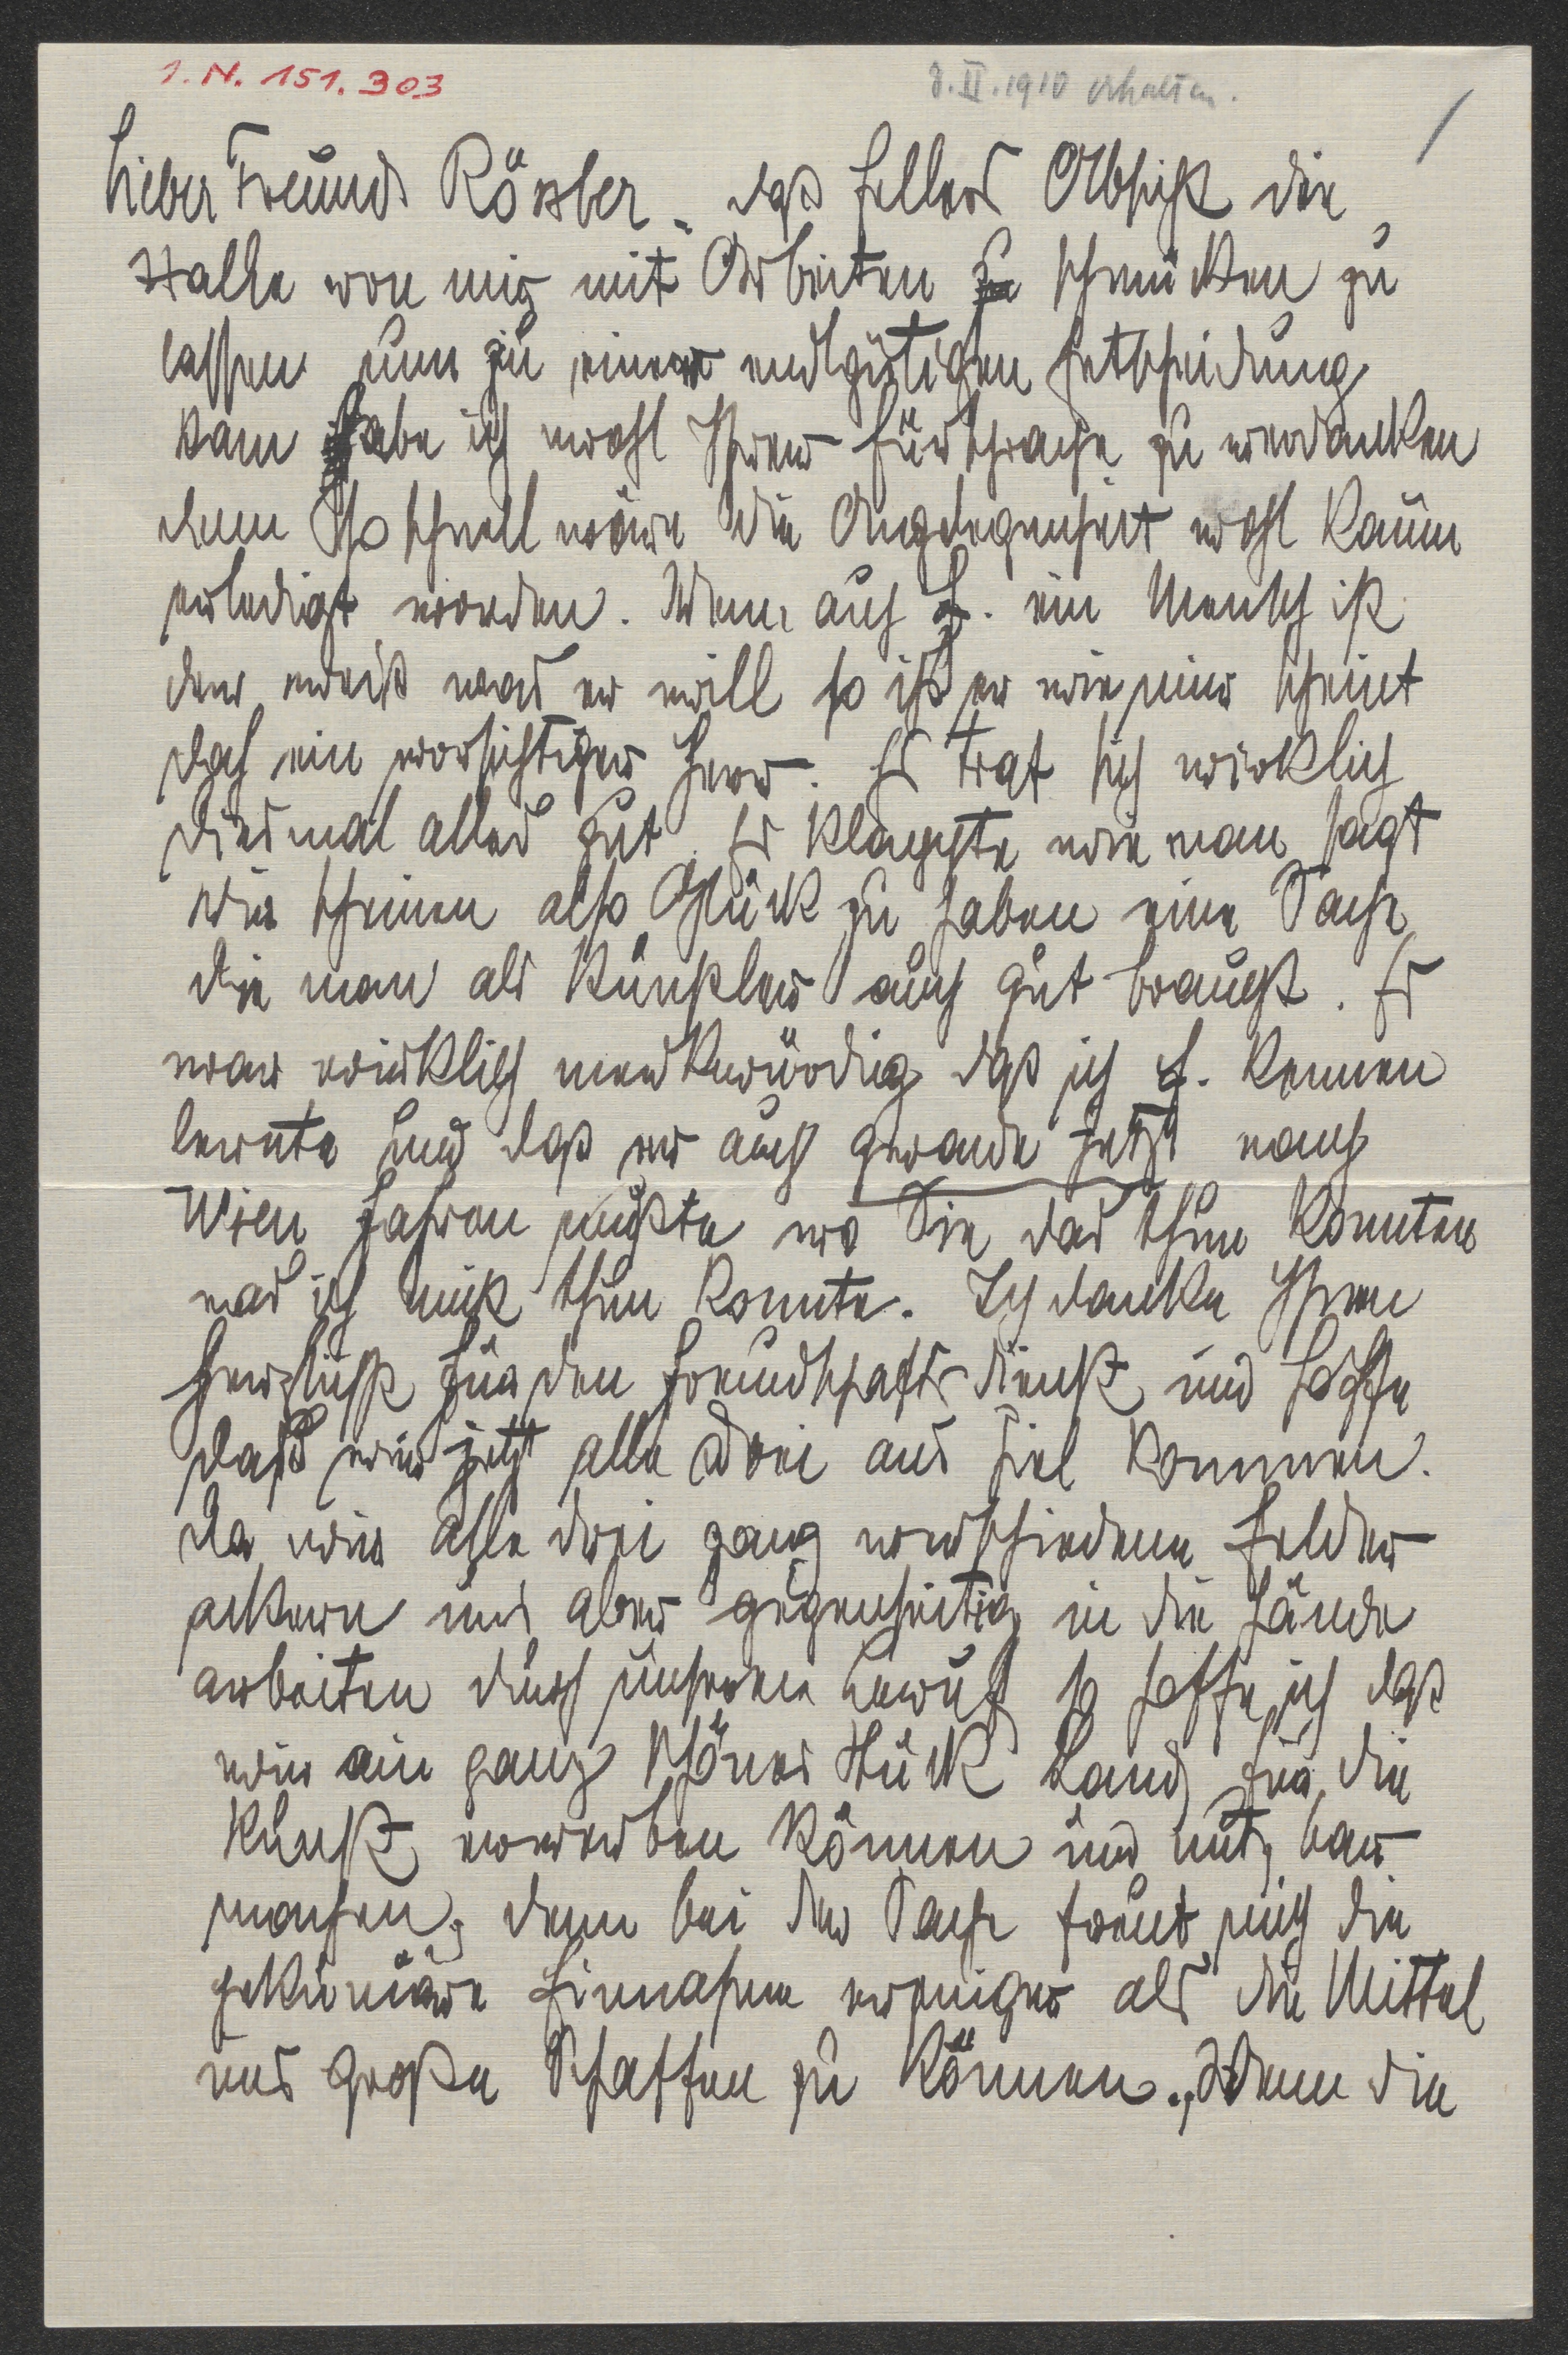 I. N. 151.303
8. II. 1910 erhalten.
Lieber Freund Rössler – daß Fellers Absicht die
Halle von mir mit Arbeiten zu schmücken zu
lassen nun zu einer endgütigen Entscheidung
kam habe ich wohl Ihrer Fürsprache zu verdanken
denn so schnell wäre die Angelegenheit wohl kaum
erledigt worden. Wenn auch F. ein Mensch ist
der weiß was er will so ist er wie mir scheint
doch ein vorsichtiger Herr. Es traf sich wirklich
diesmal alles gut. Es klappte wie man sagt
wir scheinen also Glück zu haben eine Sache
die man als Künstler auch gut braucht. Es
war wirklich merkwürdig daß ich F. kennen
lernte und daß er auch gerade jetzt nach
Wien fahren mußte wo Sie das thun konnten
was ich nicht thun konnte. Ich danke Ihnen
herzlichst für den Freundschaftsdienst und hoffe
dass wir jetzt alle drei ans Ziel kommen.
Da wir alle drei ganz verschiedene Felder
ackern uns aber gegenseitig in die Hände
arbeiten durch unseren Beruf so hoffe ich daß
wir ein ganz schönes Stück Land für die
Kunst erwerben können und nutzbar
machen, denn bei der Sache freut mich die
pekuniäre Einnahme weniger als die Mittel
was Große Schaffen zu können. Wenn die